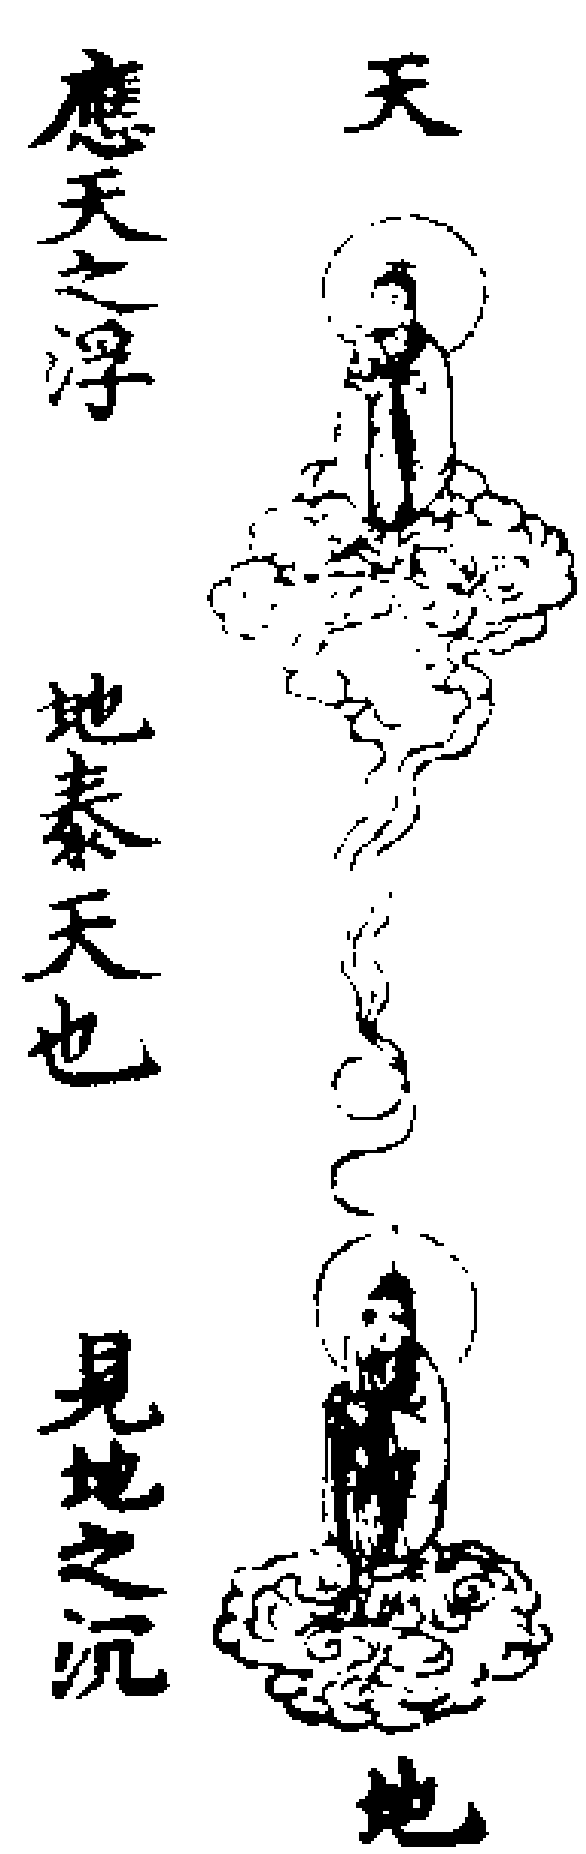 天
地
應天之浮
地泰天也
見地之沉